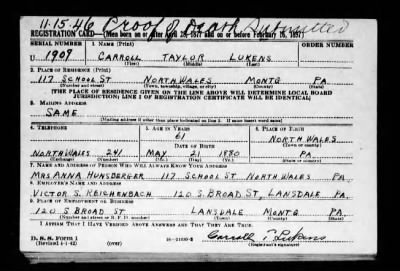 11-15-46 Proof of Death Submitted
REGISTRATION CARD—(Men born on or after April 28, 1877 and on or before February 16, 1897)
SERIAL NUMBER 1. NAME (Print) ORDER NUMBER
U 1907 CARROLL TAYLOR LUKENS
(First) (Middle) (Last)
2. PLACE OF RESIDENCE (Print)
117 SCHOOL ST NORTH WALES MONTG PA
(Number and street) (Town, township, village, or city) (County) (State)
[THE PLACE OF RESIDENCE GIVEN ON THE LINE ABOVE WILL DETERMINE LOCAL BOARD
JURISDICTION; LINE 2 OF REGISTRATION CERTIFICATE WILL BE IDENTICAL]
3. MAILING ADDRESS
SAME
(Mailing address if other than place indicated on line 2. If same insert word same)
4. TELEPHONE 5. AGE IN YEARS 6. PLACE OF BIRTH
61 NORTH WALES
DATE OF BIRTH (Town or county)
NORTH WALES 241 MAY 21 1880 PA
(Exchange) (Number) (Mo.) (Day) (Yr.) (State or country)
7. NAME AND ADDRESS OF PERSON WHO WILL ALWAYS KNOW YOUR ADDRESS
MRS ANNA HUNSBERGER 117 SCHOOL ST NORTH WALES PA.
8. EMPLOYER'S NAME AND ADDRESS
VICTOR S. REICHENBACH 120 S. BROAD ST, LANSDALE PA.
9. PLACE OF EMPLOYMENT OR BUSINESS
120 S BROAD ST LANSDALE MONTG PA.
(Number and street or R. F. D. number) (Town) (County) (State)
I AFFIRM THAT I HAVE VERIFIED ABOVE ANSWERS AND THAT THEY ARE TRUE.
D. S. S. Form 1
(Revised 4-1-42) (over) Carroll T. Lukens
(Registrant's signature)